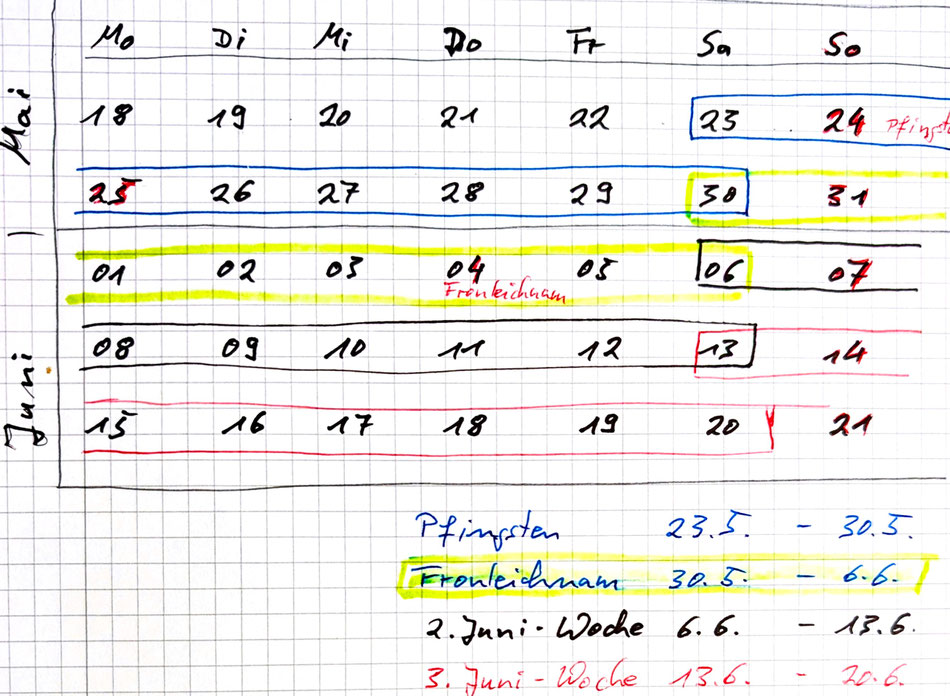 Mo Di Mi Do Fr Sa So
Mai
18 19 20 21 22 23 24 Pfingst
25 26 27 28 29 30 31
01 02 03 04 05 06 07
Fronleichnam
Juni
08 09 10 11 12 13 14
15 16 17 18 19 20 21
Pfingsten 23.5. - 30.5.
Fronleichnam 30.5. - 6.6.
2. Juni-Woche 6.6. - 13.6.
3. Juni-Woche 13.6 - 20.6.